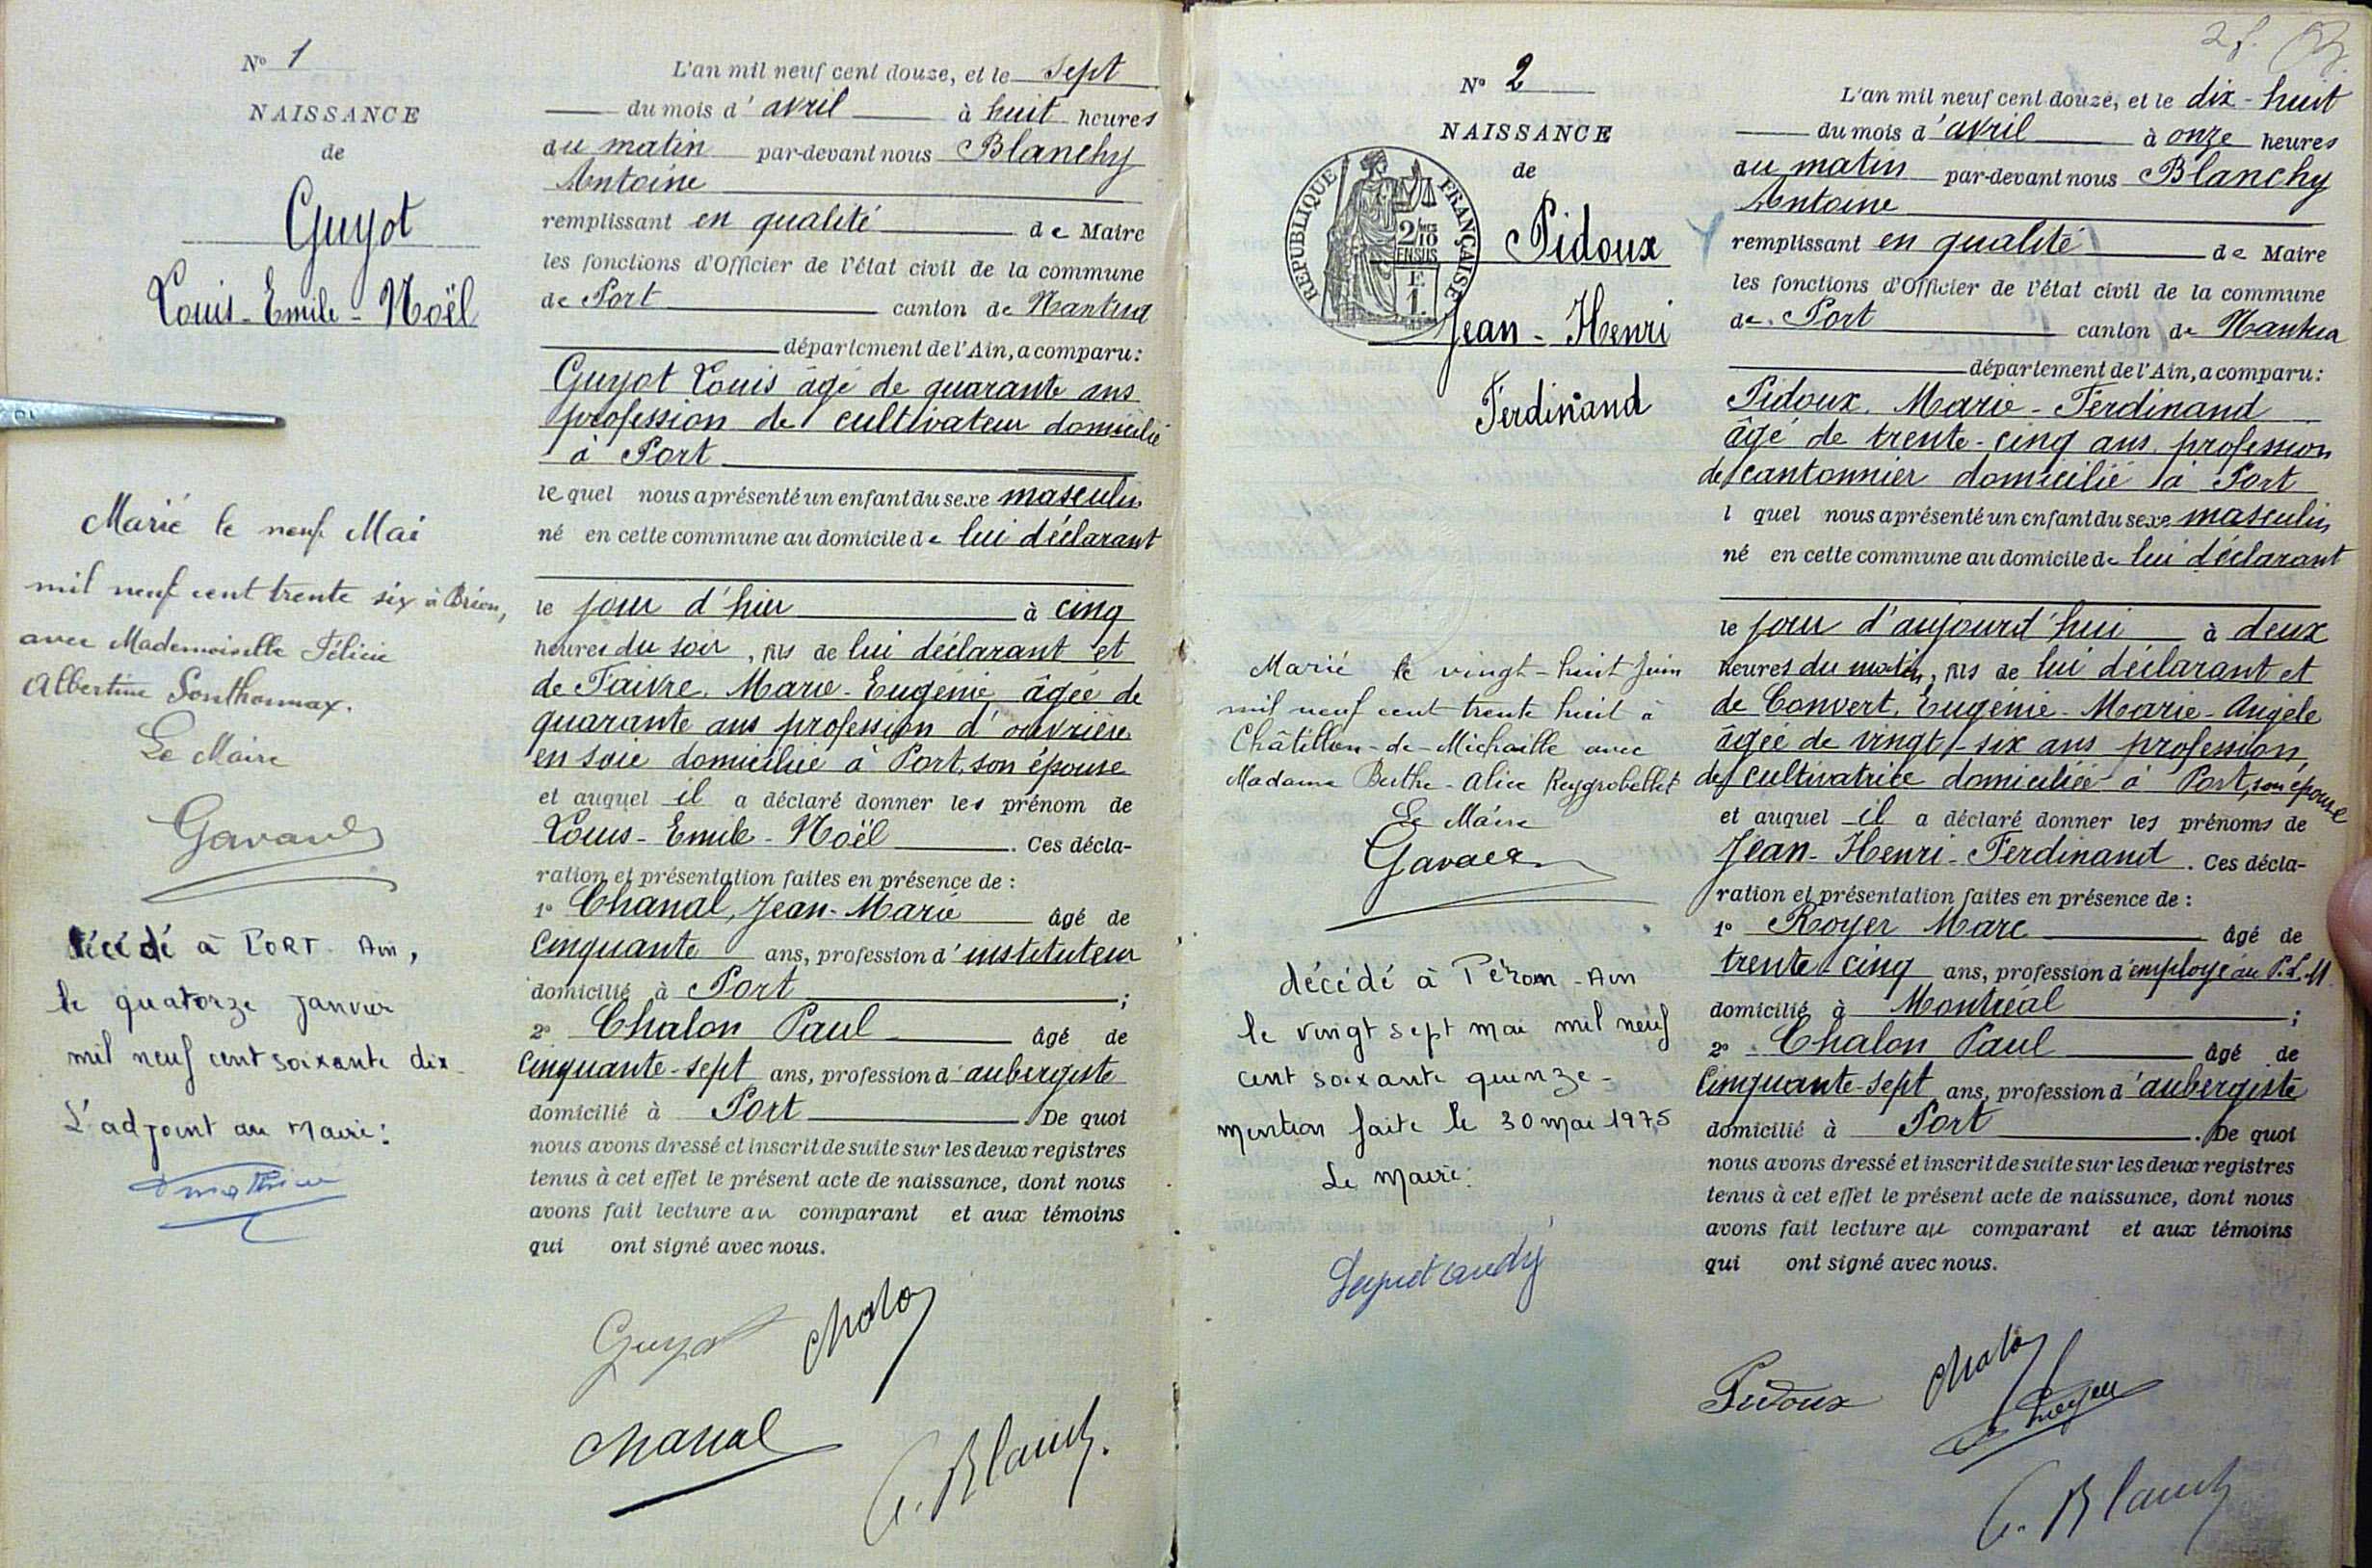 Nº 1
NAISSANCE
de
Guyot
Louis-Emile-Noël
Marié le neuf Mai
mil neuf cent trente six à Brion,
avec Mademoiselle Félicie
Albertine Sonthonnax.
Le Maire
décédé à PORT Ain,
le quatorze janvier
mil neuf cent soixante dix
L'adjoint au Maire:
L'an mil neuf cent douze, et le sept
du mois d'avril à huit heures
du matin par-devant nous Blanchy
Antoine
remplissant en qualité de Maire
les fonctions d'Officier de l'état civil de la commune
de Port canton de Nantua
département de l'Ain, a comparu:
Guyot Louis âgé de quarante ans
profession de cultivateur domicilié
à Port
lequel nous a présenté un enfant du sexe masculin
né en cette commune au domicile de lui déclarant
le jour d'hier à cinq
heures du soir, fils de lui déclarant et
de Faivre, Marie-Eugénie âgée de
quarante ans profession d'ouvrière
en soie domiciliée à Port, son épouse
et auquel il a déclaré donner les prénom de
Louis-Emile-Noël. Ces décla-
ration et présentation faites en présence de :
1º Chanal, Jean-Marie âgé de
cinquante ans, profession d'instituteur
domicilié à Port ;
2º Chalon Paul âgé de
cinquante-sept ans, profession d'aubergiste
domicilié à Port. De quoi
nous avons dressé et inscrit de suite sur les deux registres
tenus à cet effet le présent acte de naissance, dont nous
avons fait lecture au comparant et aux témoins
qui ont signé avec nous.
Guyot Chalon
Chanal A. Blanchy
Nº 2
NAISSANCE
de
REPUBLIQUE FRANÇAISE
2/10
EN SUS
F.
1.
Pidoux
Jean-Henri
Ferdinand
Marié le vingt-huit juin
mil neuf cent trente huit à
Châtillon-de-Michaille avec
Madame Berthe-Alice Reygrobellet
Le Maire
décédé à Péron-Ain
le vingt sept mai mil neuf
cent soixante quinze-
mention faite le 30 mai 1975
Le Maire:
L'an mil neuf cent douze, et le dix-huit
du mois d'avril à onze heures
du matin par-devant nous Blanchy
Antoine
remplissant en qualité de Maire
les fonctions d'Officier de l'état civil de la commune
de Port canton de Nantua
département de l'Ain, a comparu:
Pidoux, Marie-Ferdinand
âgé de trente-cinq ans, profession
de cantonnier domicilié à Port
l quel nous a présenté un enfant du sexe masculin
né en cette commune au domicile de lui déclarant
le jour d'aujourd'hui à deux
heures du matin, fils de lui déclarant et
de Convert, Eugénie-Marie-Angèle
âgée de vingt-six ans profession
de cultivatrice domiciliée à Port, son épouse
et auquel il a déclaré donner les prénoms de
Jean-Henri-Ferdinand. Ces décla-
ration et présentation faites en présence de :
1º Royer Marc âgé de
trente-cinq ans, profession d'employé au P.L.M.
domicilié à Montréal ;
2º Chalon Paul âgé de
cinquante-sept ans, profession d'aubergiste
domicilié à Port. De quoi
nous avons dressé et inscrit de suite sur les deux registres
tenus à cet effet le présent acte de naissance, dont nous
avons fait lecture au comparant et aux témoins
qui ont signé avec nous.
Pidoux Chalon
Royer
A. Blanchy